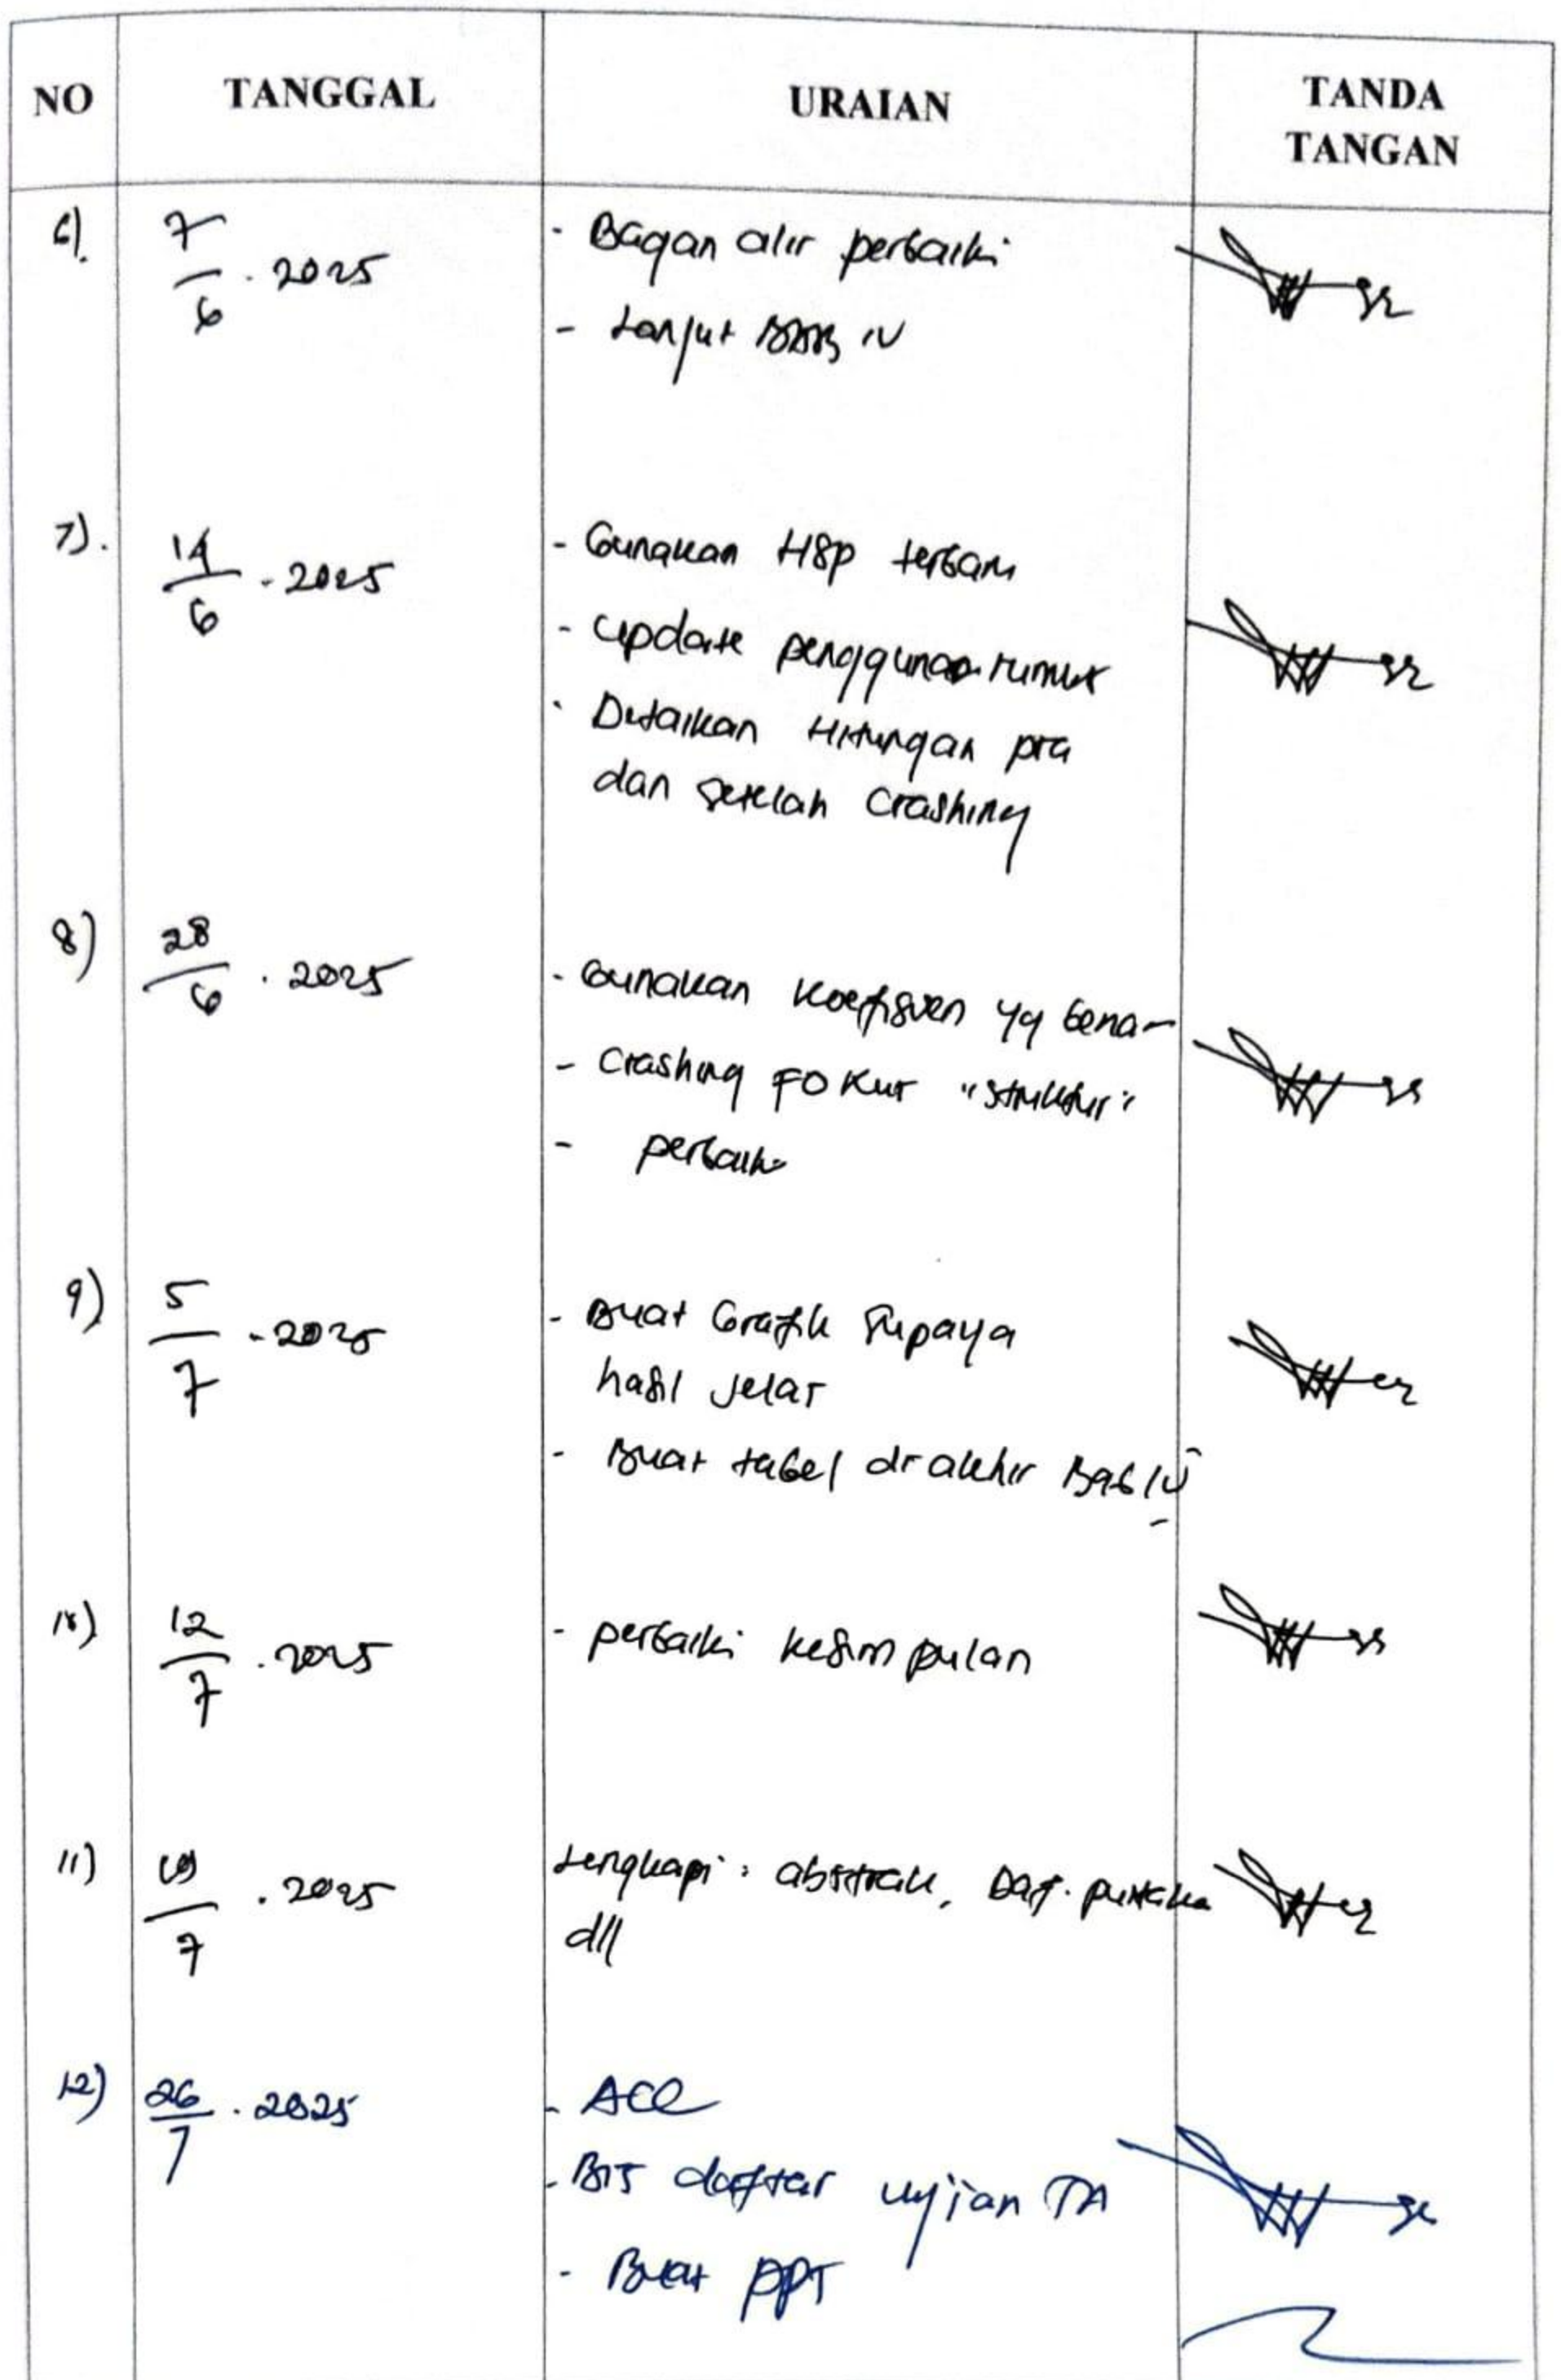 NO TANGGAL URAIAN TANDA TANGAN
6). 7/6 . 2025 - Bagan alir perbaiki
- Lanjut BAB IV
7). 14/6 - 2025 - Gunakan HSP terbaru
- Update penggunaan rumus
- Detailkan Hitungan pra
dan setelah Crashing
8) 28/6 . 2025 - Gunakan Koefisien yg benar
- Crashing FOKUS "struktur"
- perbaiki
9) 5/7 - 2025 - Buat Grafik Supaya
hasil jelas
- Buat tabel di akhir Bab IV
10) 12/7 . 2025 - perbaiki kesimpulan
11) 19/7 . 2025 Lengkapi : abstrak, Daf. pustaka
dll
12) 26/7 . 2025 - ACC
- BIS daftar ujian TA
- Buat PPT